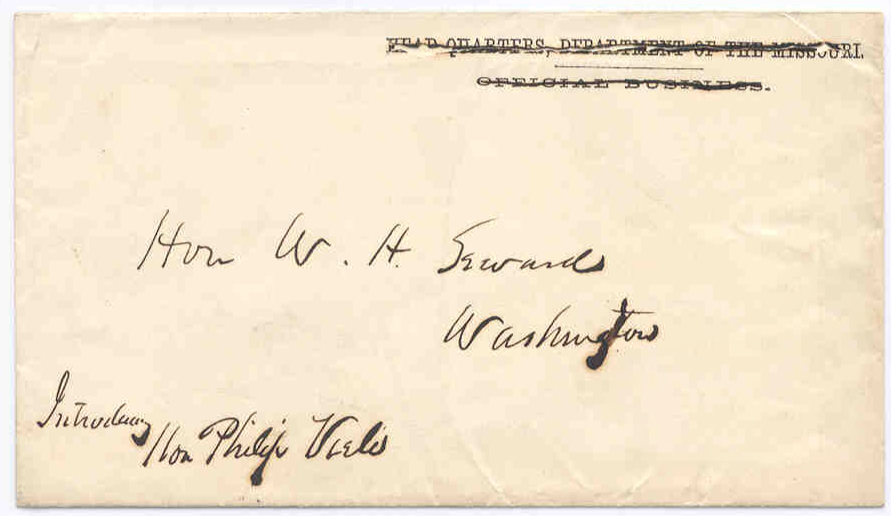 HEAD QUARTERS, DEPARTMENT OF THE MISSOURI.
OFFICIAL BUSINESS.
Hon W. H. Seward
Washington
Introducing
Hon Philip Viele